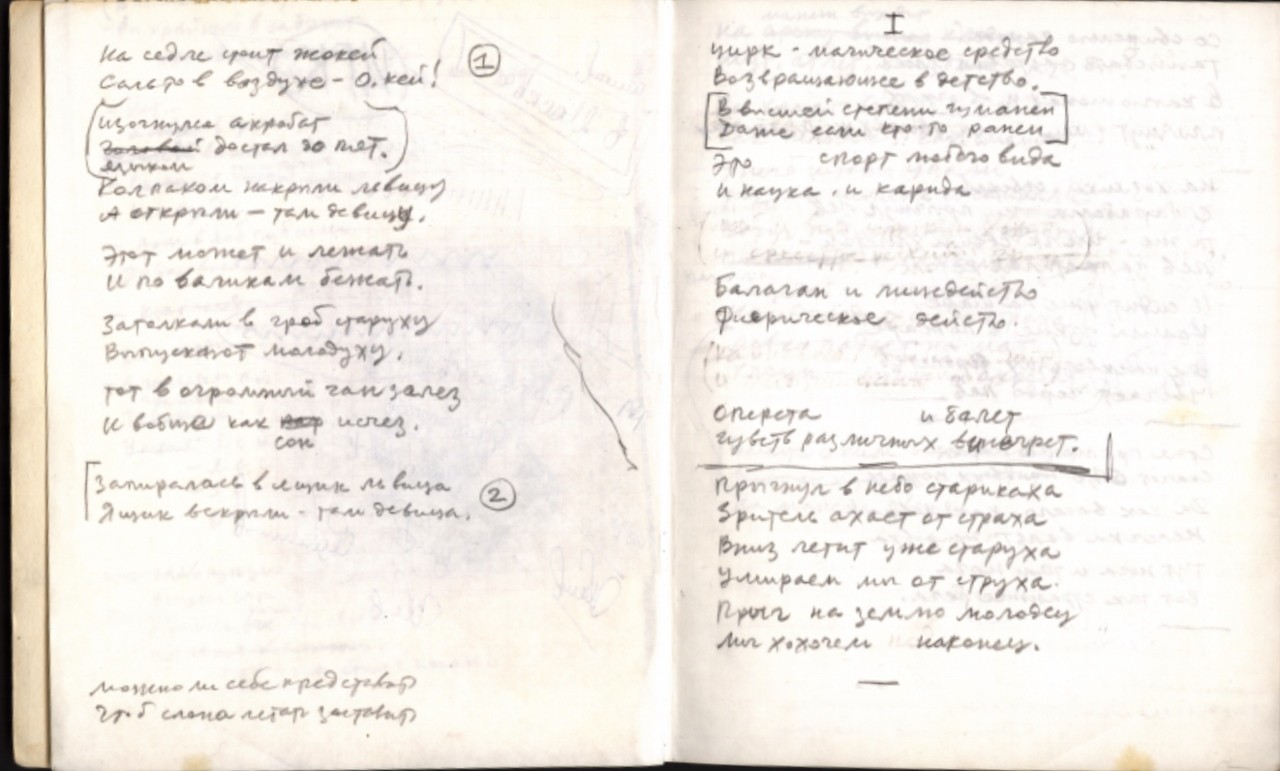 На седле стоит жокей
Сальто в воздухе - О, кей!
1
Изогнулся акробат
головой достал до пят.
языком
Колпаком накрыли львицу
А открыли - там девицу.
Этот может и лежать
И по   бежать.
Затолкали в гроб старуху
Выпускают молодуху.
Тот в огромный чан залез
И вобще как пар исчез.
сон
Запиралась в ящик львица
Ящик вскрыли - там девица.
2
можно ли себе представить
чтоб слона летать заставить
I
Цирк - магическое средство
Возвращающее в детство.
В высшей степени гуманен
Даже если кто то ранен
Это спорт любого вида
И наука и карида
Балаган и лицедейство
Феерическое действо.
Оперета и балет
Чувств различных винегрет.
Прыгнул в небо старикаха
Зритель ахает от страха
Вниз летит уже старуха
Умираем мы от струха.
Прыг на землю молодец
Мы хохочем наконец.